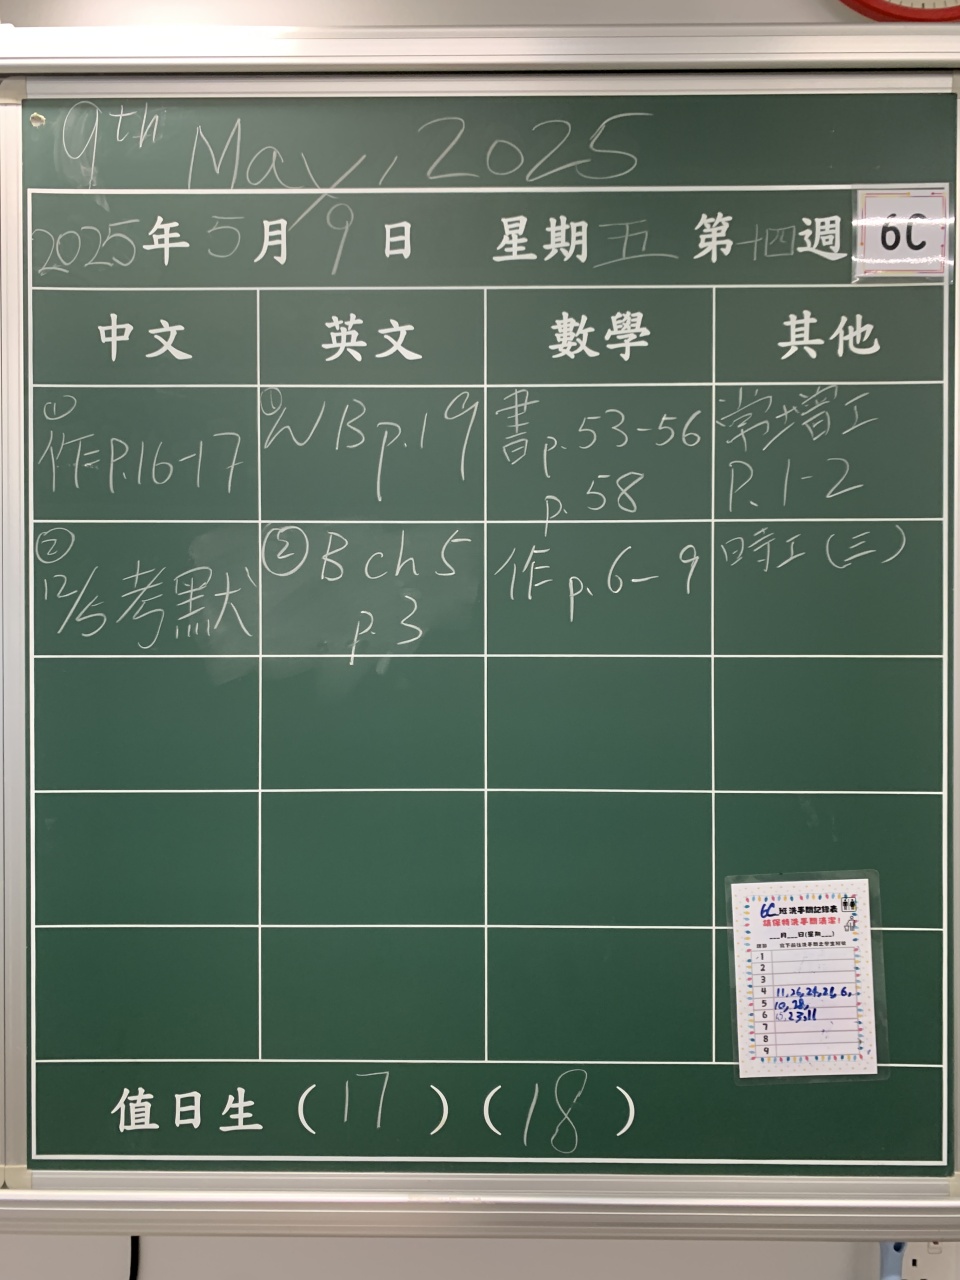 9th May, 2025
2025年5月9日 星期五 第十四週 6C
中文 英文 數學 其他
① 作P.16-17
① WB p.19
書 p.53-56
p.58
常增工
P.1-2
② 12/5 考默
② B ch 5
p.3
作 p.6-9
時工(三)
6C班洗手間記錄表
請保持洗手間清潔!
___月___日(星期___)
1
2
3
4 11, 26, 24, 21, 6,
5 10, 28,
6 23, 11
7
8
9
值日生(17)(18)